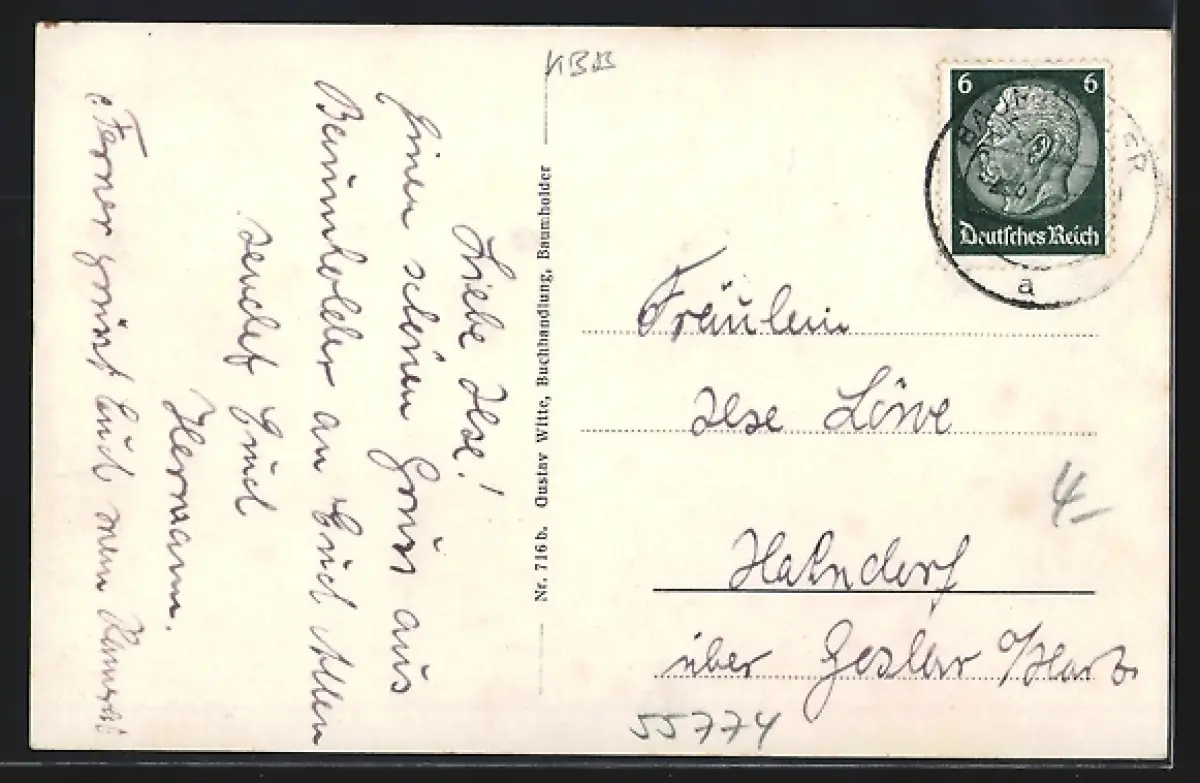 KBB
Liebe Ilse!
Einen schönen Gruß aus
Baumholder an Euch Allen
sendet Euch
Hermann.
Ferner grüßt Euch mein Kamerad
Nr. 716 b. Gustav Witte, Buchhandlung, Baumholder
6 6
Deutsches Reich
a
Fräulein
Ilse Löwe
4-
Hahndorf
über Goslar /Harz
55774